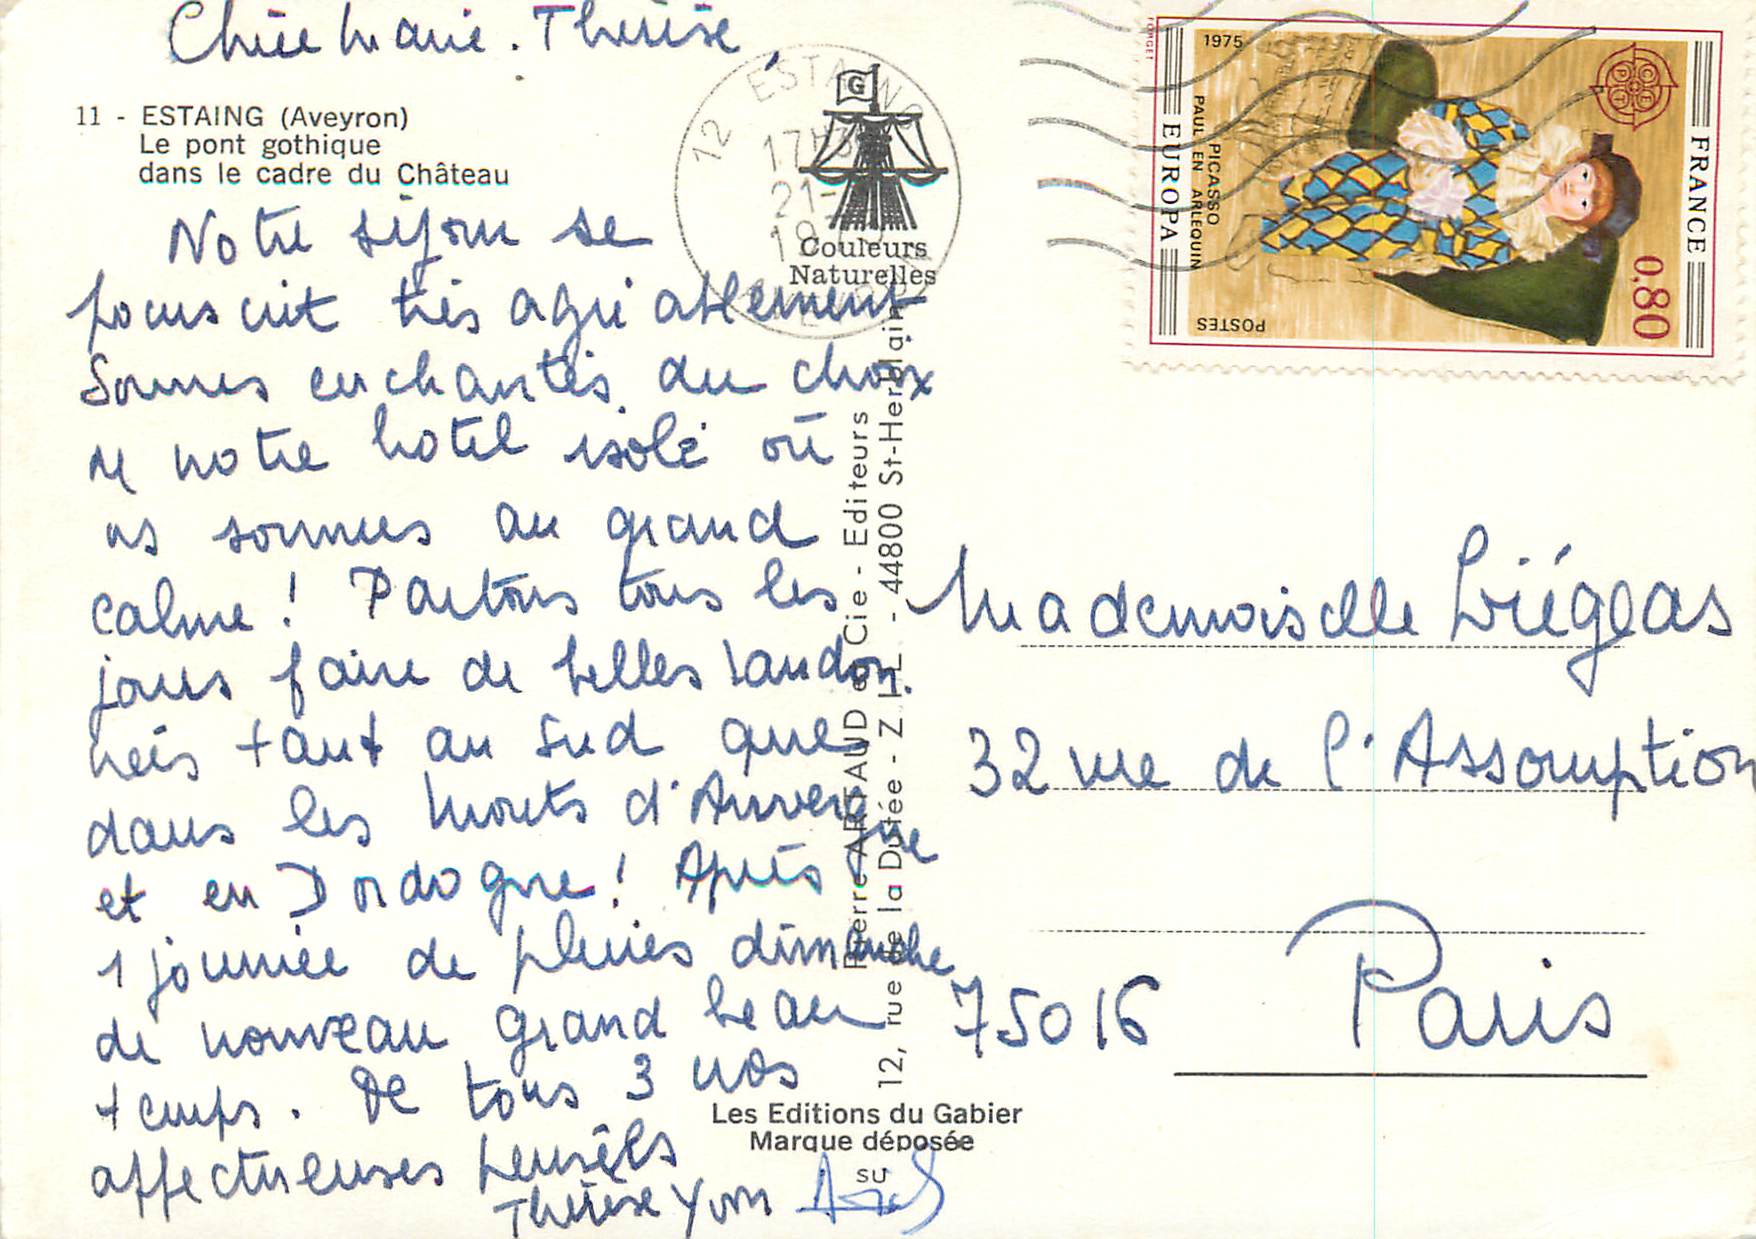 Chère Marie-Thérèse,
11 - ESTAING (Aveyron)
Le pont gothique
dans le cadre du Château
Notre séjour se
poursuit très agréablement
Sommes enchantés du choix
de notre hotel isolé où
ns sommes au grand
calme ! Partons tous les
jours faire de belles randon-
nées tant au sud que
dans les Monts d'Auvergne
et en Dordogne ! Après
1 journée de pluies dimanche
de nouveau grand beau
temps. De tous 3 nos
affectueuses pensées
Thérèse Yvon
12 ESTAING
17H3
21-
19
G
Couleurs
Naturelles
Pierre ARTAUD et Cie - Editeurs
12, rue de la Dutée - Z.I.L. - 44800 St-Herblain
Les Editions du Gabier
Marque déposée
SU
1975
PAUL PICASSO
EN ARLEQUIN
EUROPA
FRANCE
0,80
POSTES
CEPT
FORGET
Mademoiselle Liégeas
32 rue de l'Assomption
75016 Paris